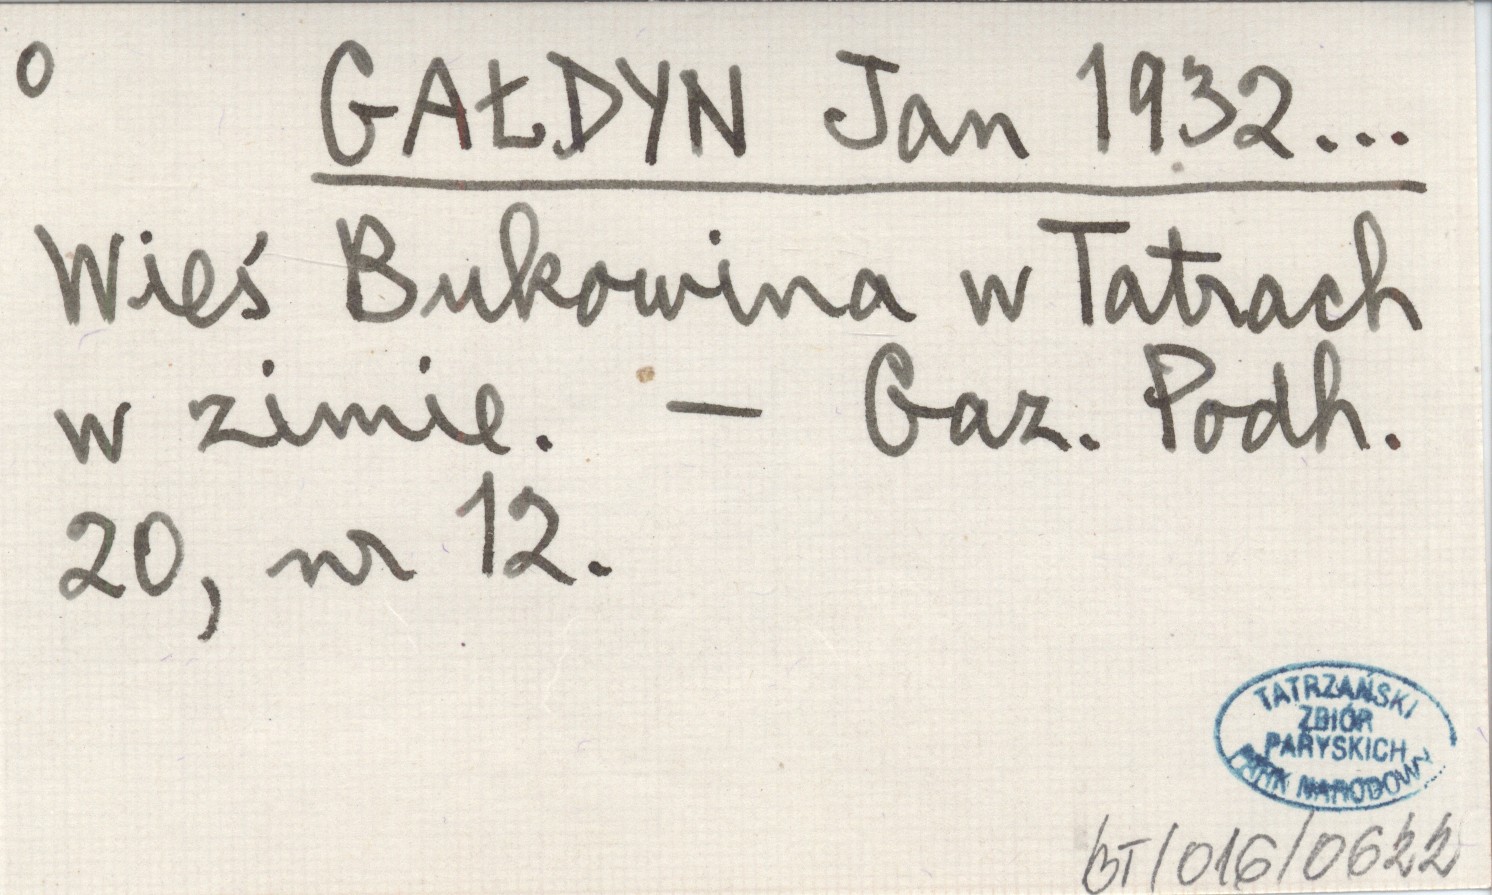 o GAŁDYN Jan 1932...
Wieś Bukowina w Tatrach
w zimie. — Gaz. Podh.
20, nr 12.
TATRZAŃSKI
ZBIÓR
PARYSKICH
PARK NARODOWY
BT/016/0622